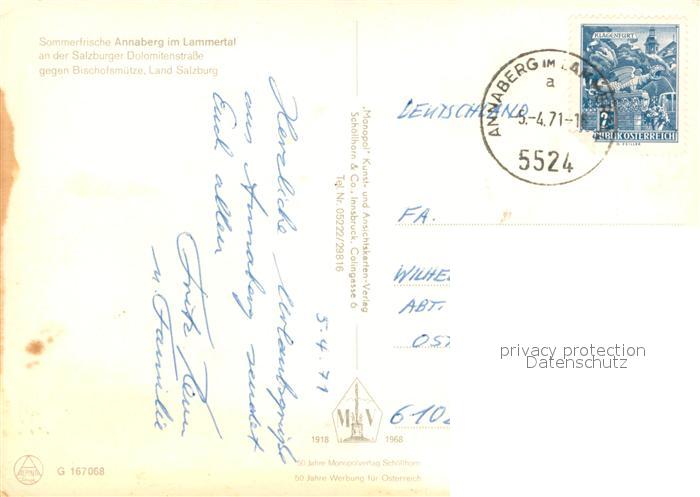 Sommerfrische Annaberg im Lammertal
an der Salzburger Dolomitenstraße
gegen Bischofsmütze, Land Salzburg
5.4.71
Herzliche Urlaubsgrüße
aus Annaberg sendet
Euch allen
Fritz
u. Familie
„Monopol" Kunst- und Ansichtskarten-Verlag
Schöllhorn & Co., Innsbruck, Colingasse 6
Tel. Nr. 05222/29816
KLAGENFURT
REPUBLIK ÖSTERREICH
ANNABERG IM
a
5.-4.71-1
5524
DEUTSCHLAND
FA.
WILHE
ABT.
OST
610
privacy protection
Datenschutz
M V
1918 1968
50 Jahre Monopolverlag Schöllhorn
50 Jahre Werbung für Österreich
G 167068